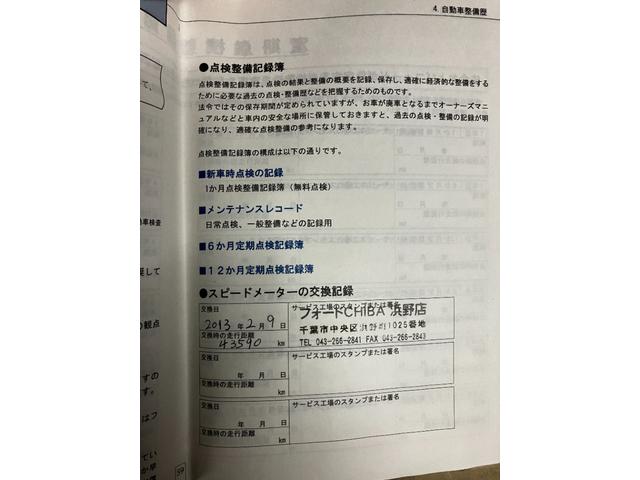 4. 自動車整備歴
●点検整備記録簿
点検整備記録簿は、点検の結果と整備の概要を記録、保存し、適確に経済的な整備をする
ために必要な過去の点検・整備歴などを把握するためのものです。
法令ではその保存期間が定められていますが、お車が廃車となるまでオーナーズマニ
ュアルなどと車内の安全な場所に保管しておきますと、過去の点検・整備の記録が明
確になり、適確な点検整備の参考になります。
点検整備記録簿の構成は以下の通りです。
■新車時点検の記録
1か月点検整備記録簿（無料点検）
■メンテナンスレコード
日常点検、一般整備などの記録用
■６か月定期点検記録簿
■１２か月定期点検記録簿
●スピードメーターの交換記録
交換日
2013年2月9日
交換時の走行距離
43590 km
サービス工場のスタンプまたは署名
フォードCHIBA 浜野店
千葉市中央区浜野町1025番地
TEL 043-266-2841 FAX 043-266-2843
交換日
年 月 日
交換時の走行距離
km
サービス工場のスタンプまたは署名
交換日
年 月 日
交換時の走行距離
km
サービス工場のスタンプまたは署名
て、
車検査
戻して
の観点
すの
す。
はフ
てい
か早